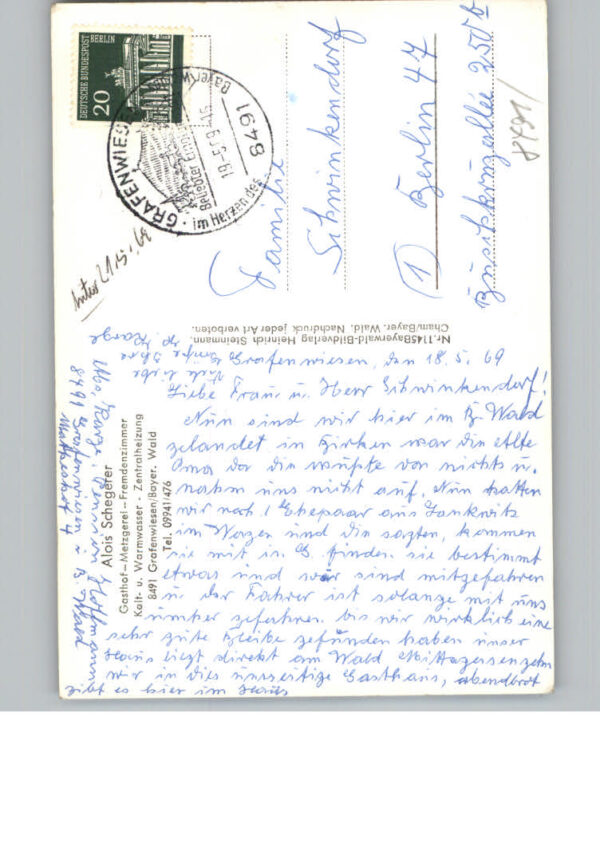 DEUTSCHE BUNDESPOST
BERLIN
20
GRAFENWIESEN
Bayer. W
8491
19.-5.69.-15
Beliebter Erho
im Herzen des
Familie
Schwinkendorf
(1) Berlin 47
Buschkrugallee 250b
8491/
21.5.69
Nr. 11458 Bayerwald-Bildverlag Heinrich Steinmann,
Cham/Bayer. Wald. Nachdruck jeder Art verboten.
Grafenwiesen, den 18.5.69
Liebe Frau u. Herr Schwinkendorf!
Nun sind wir hier im B. Wald
gelandet in war die alte
Oma da die wußte von nichts u.
nahm uns nicht auf. Nun hatten
wir noch 1 Ehepaar aus Lankwitz
im Wagen und die sagten, kommen
sie mit in G. finden sie bestimmt
etwas und wir sind mitgefahren
u. der Fahrer ist solange mit uns
umher gefahren bis wir wirklich eine
sehr gute Bleibe gefunden haben unser
Haus liegt direkt am Wald Mittagessen gehn
wir in dies Gasthaus, abendbrot
gibt es hier im Haus
Viele liebe
Grüße Ihre
Karge
Alois Schegerer
Gasthof – Metzgerei – Fremdenzimmer
Kalt- u. Warmwasser - Zentralheizung
8491 Grafenwiesen/Bayer. Wald
Tel. 09941/476
Karge, Pension
8491 Grafenwiesen i. B. Wald